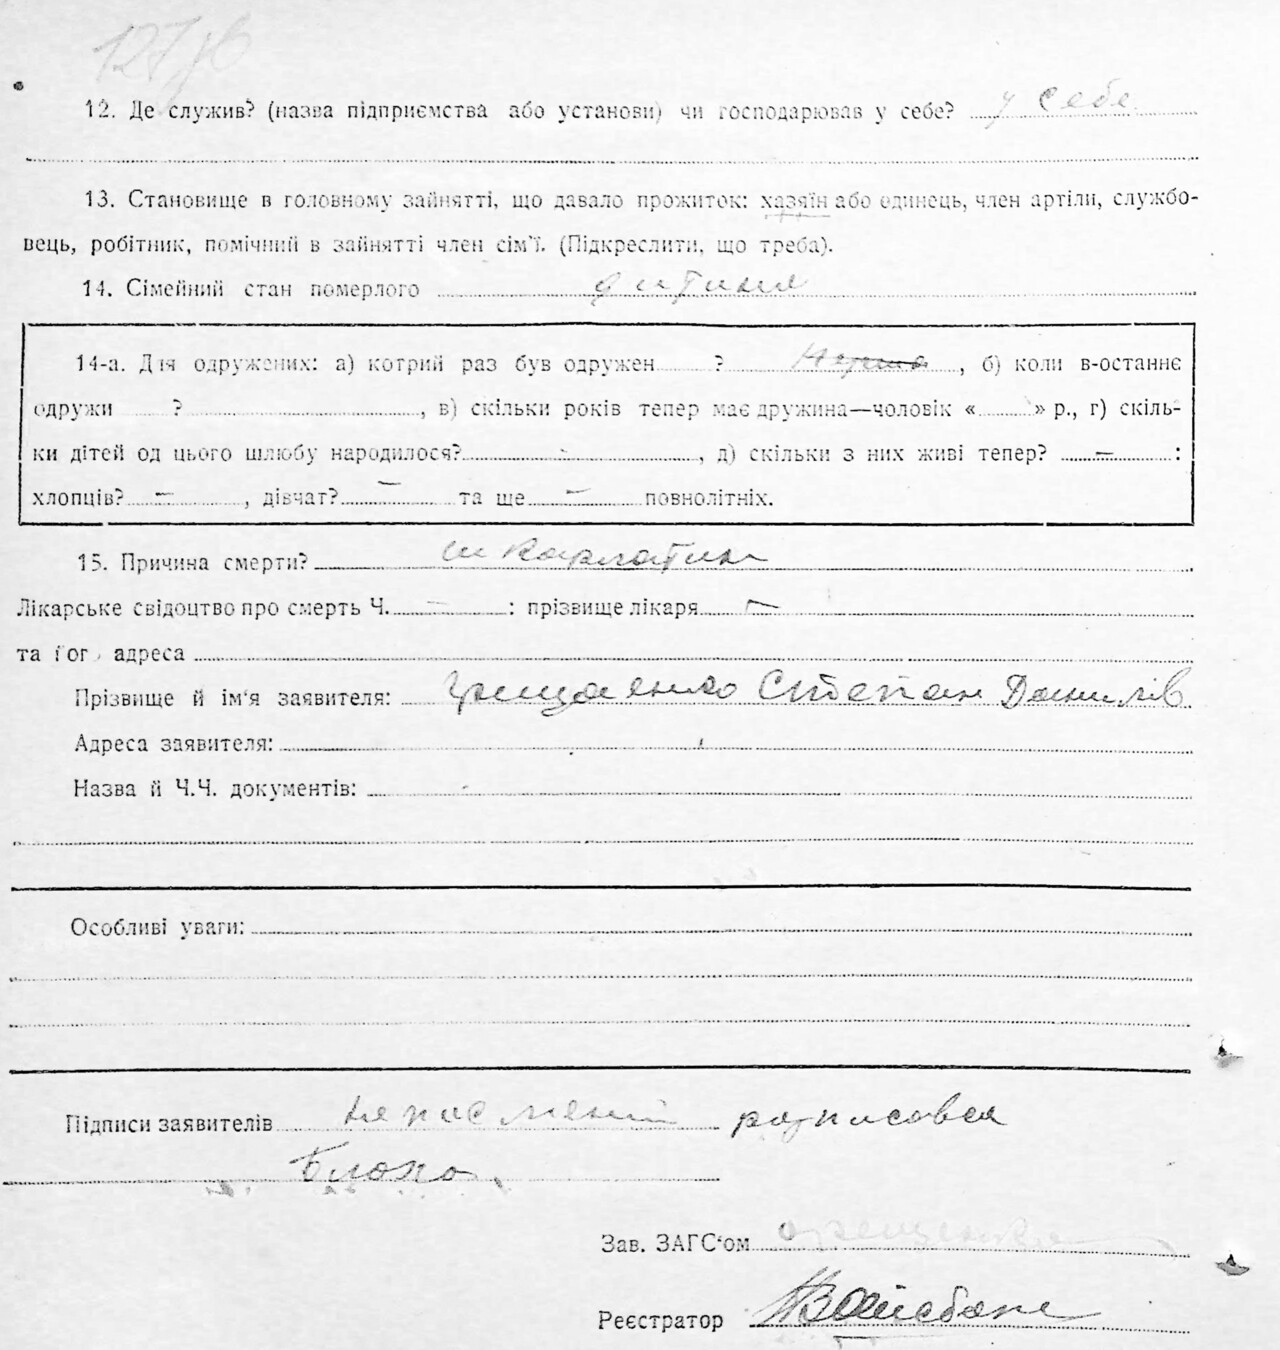 12. Де служив? (назва підприємства або установи) чи господарював у себе? у себе
13. Становище в головному зайнятті, що давало прожиток: хазяїн або одинець, член артіли, службо-
вець, робітник, помічний в зайнятті член сім'ї. (Підкреслити, що треба).
14. Сімейний стан померлого дитина
14-а. Для одружених: а) котрий раз був одружен ? , б) коли в-останнє
одружи ? , в) скільки років тепер має дружина—чоловік « » р., г) скіль-
ки дітей од цього шлюбу народилося? - , д) скільки з них живі тепер? — :
хлопців? — , дівчат? — та ще — повнолітніх.
15. Причина смерти? шкарлатин
Лікарське свідоцтво про смерть Ч. — : прізвище лікаря —
та його адреса
Прізвище й ім'я заявителя: Грищаенко Степан Данилів
Адреса заявителя:
Назва й Ч.Ч. документів:
Особливі уваги:
Підписи заявителів неписмений розписовся
Зав. ЗАГС'ом
Реєстратор